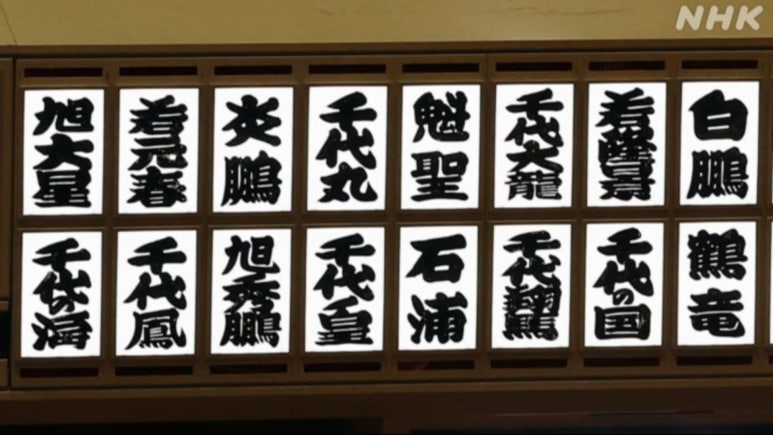 NHK
白鵬
若隆景
千代大龍
魁聖
千代丸
炎鵬
若元春
旭大星
鶴竜
千代の国
千代翔馬
石浦
千代皇
旭秀鵬
千代鳳
千代の海